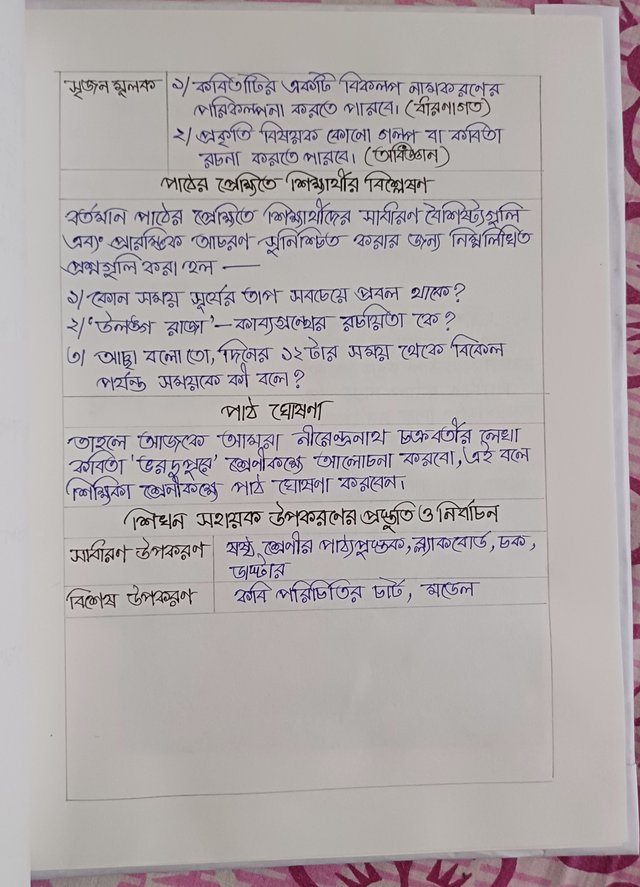 সৃজন মূলক
১/ কবিতাটির একটি বিকল্প নামকরণের
পরিকল্পনা করতে পারবে। (ধারণাগত)
২/ প্রকৃতি বিষয়ক কোনো গল্প বা কবিতা
রচনা করতে পারবে। (অধিজ্ঞান)
পাঠের প্রেক্ষিতে শিক্ষার্থীর বিশ্লেষণ
বর্তমান পাঠের প্রেক্ষিতে শিক্ষার্থীদের সাধারণ বৈশিষ্ট্যগুলি
এবং প্রারম্ভিক আচরণ সুনিশ্চিত করার জন্য নিম্নলিখিত
প্রশ্নগুলি করা হল —
১/ কোন সময় সূর্যের তাপ সবচেয়ে প্রবল থাকে?
২/ 'উলঙ্গ রাজা' – কাব্যগ্রন্থের রচয়িতা কে?
৩/ আচ্ছা বলো তো, দিনের ১২টার সময় থেকে বিকেল
পর্যন্ত সময়কে কী বলে?
পাঠ ঘোষনা
তাহলে আজকে আমরা নীরেন্দ্রনাথ চক্রবর্তীর লেখা
কবিতা 'ভরদুপুরে' শ্রেনীকক্ষে আলোচনা করবো, এই বলে
শিক্ষিকা শ্রেনীকক্ষে পাঠ ঘোষনা করবেন।
শিখন সহায়ক উপকরণের প্রস্তুতি ও নির্বাচন
সাধারণ উপকরণ
ষষ্ঠ শ্রেনীর পাঠ্যপুস্তক, ব্ল্যাকবোর্ড, চক,
ডাস্টার
বিশেষ উপকরণ
কবি পরিচিতির চার্ট, মডেল